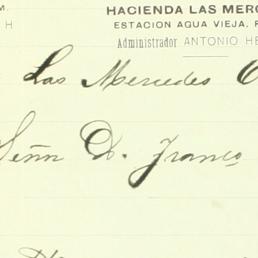 M. HACIENDA LAS MERC
H ESTACION AGUA VIEJA, F
Administrador ANTONIO HE
Las Mercedes O
Señn D. Franco